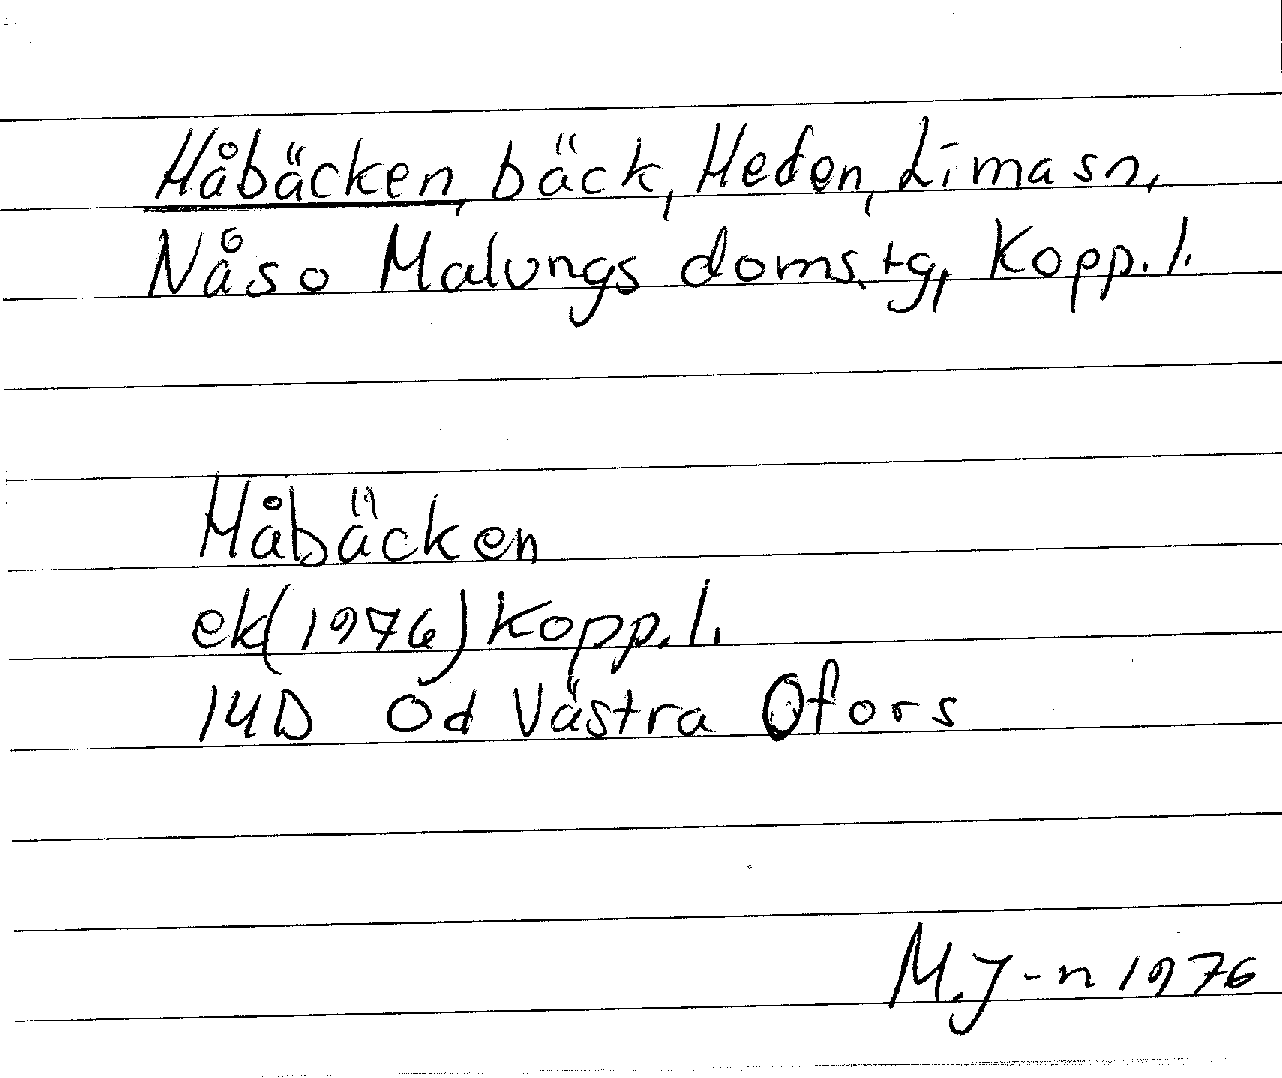 Håbäcken, bäck, Heden, Lima sn,
Nås o Malungs doms.tg, Kopp.l.
Håbäcken
ek(1976) Kopp.l.
14D 0d Västra Ofors
M.J-n 1976